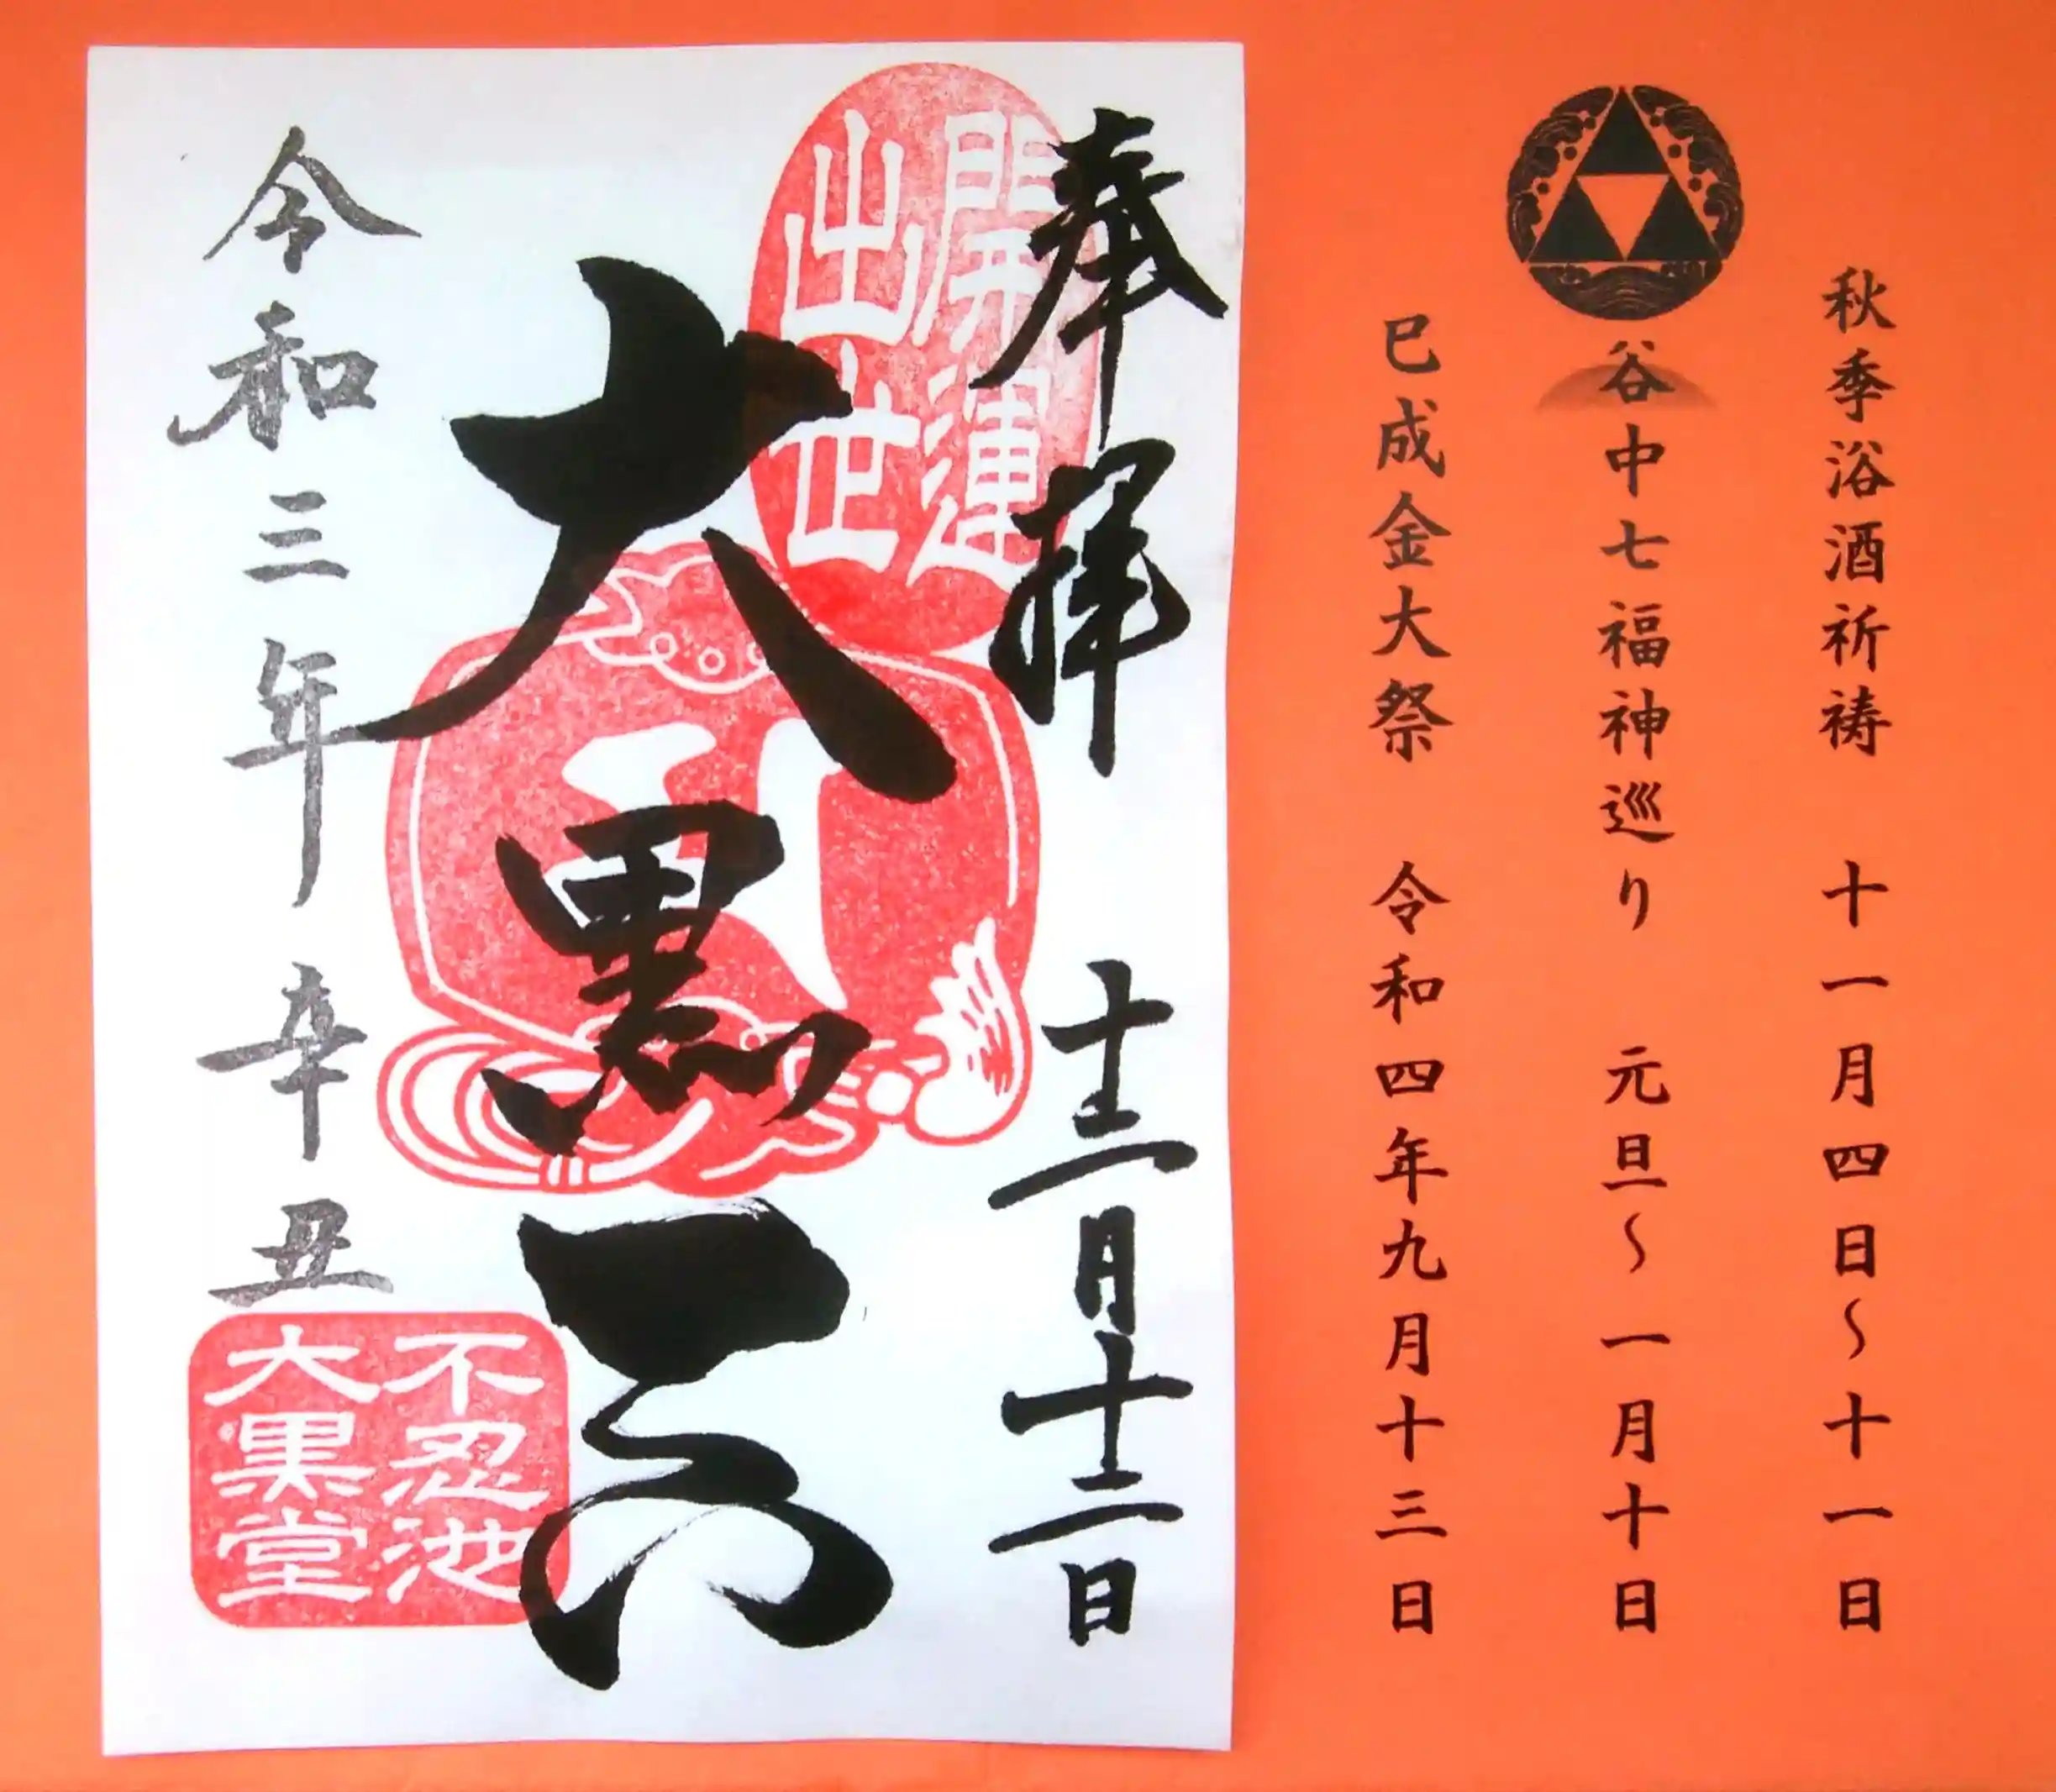 秋季浴酒祈祷 十一月四日〜十一日
谷中七福神巡り 元旦〜一月十日
巳成金大祭 令和四年九月十三日
開運
出世
奉拝 十二月十二日
大黒天
令和三年 辛丑
不忍池
大黒堂